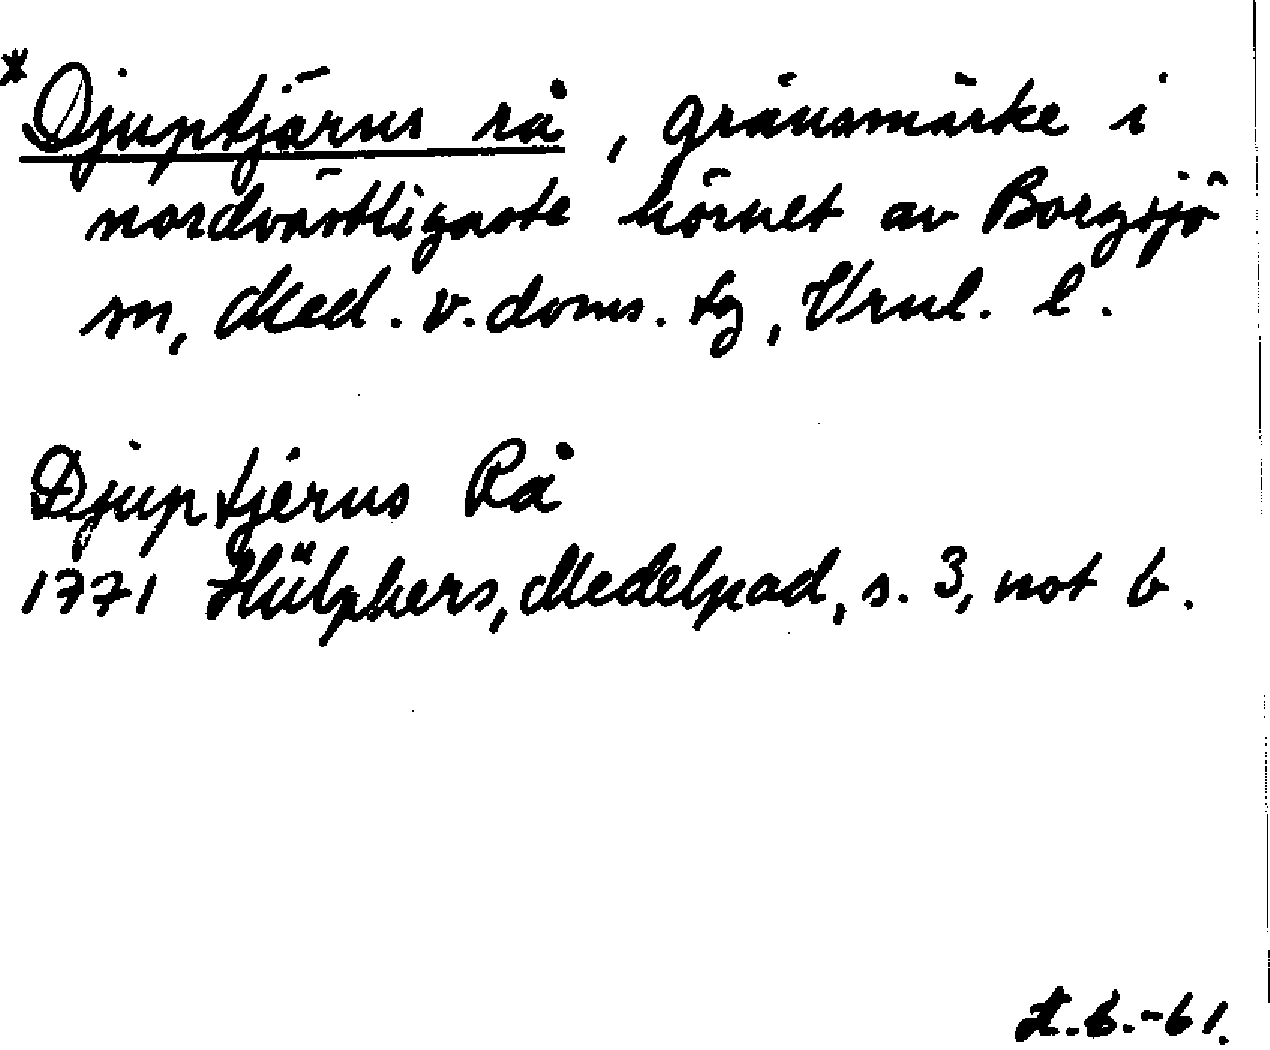 * Djuptjärns rå, gränsmärke i
nordvästligaste hörnet av Borgsjö
sn, Med. v. doms. tg, Vrnl. l.
Djuptjerns Rå
1771 Hülphers, Medelpad, s. 3, not b.
-61.